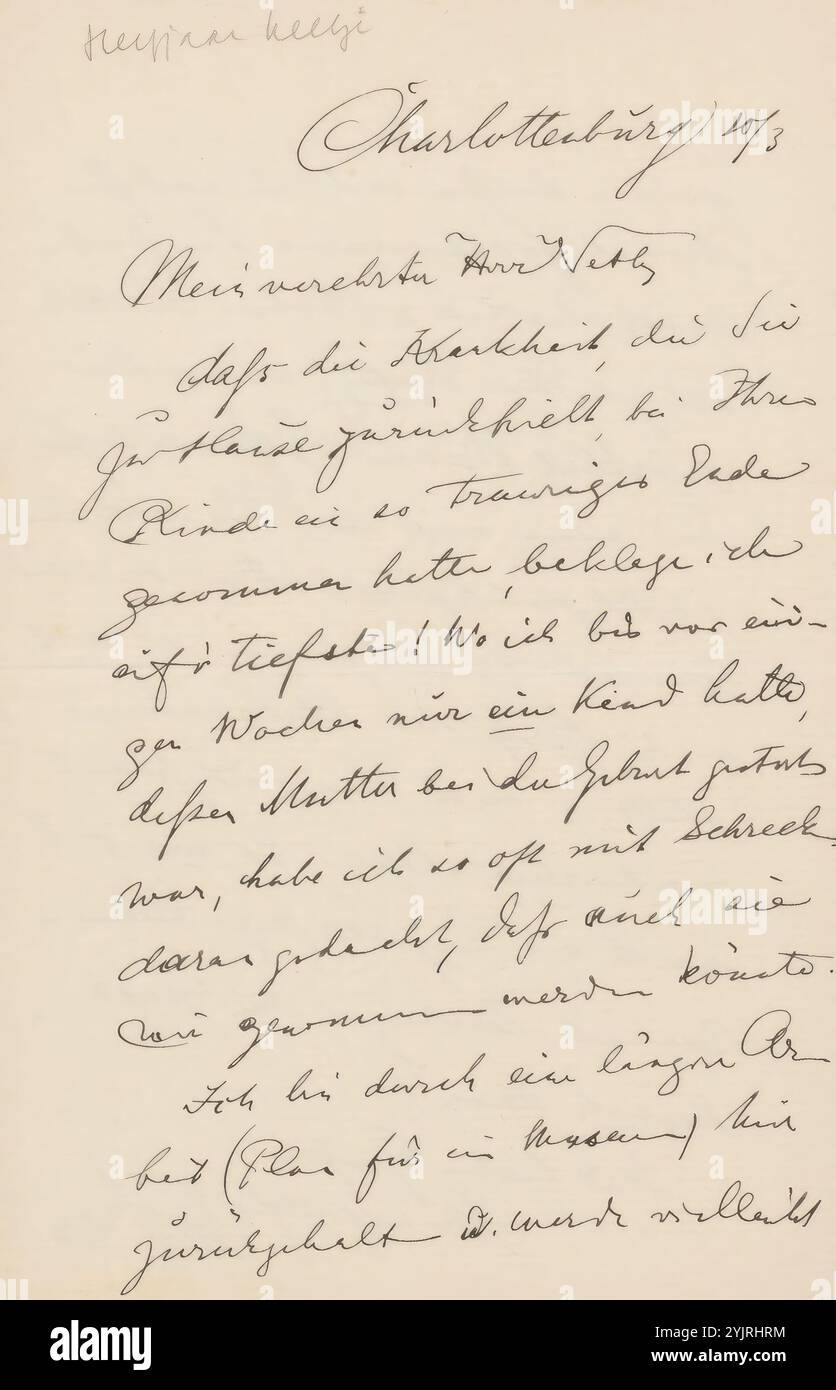 Charlottenburg 10/3
Mein verehrter Herr Veth,
daß die Krankheit, die Sie
zu Hause zurückhielt, bei Ihrem
Kinde ein so trauriges Ende
genommen hatte, beklage ich
auf's tiefste! Wo ich bis vor eini-
gen Wochen nur ein Kind hatte,
dessen Mutter bei der Geburt gestorben
war, habe ich so oft mit Schreck
daran gedacht, daß auch sie
mir genommen werden könnte.
Ich bin durch eine längere Ar-
beit (Plan für ein Museum) hier
zurückgehalten u. werde vielleicht
alamy
Image ID: 2YJRHRM
www.alamy.com